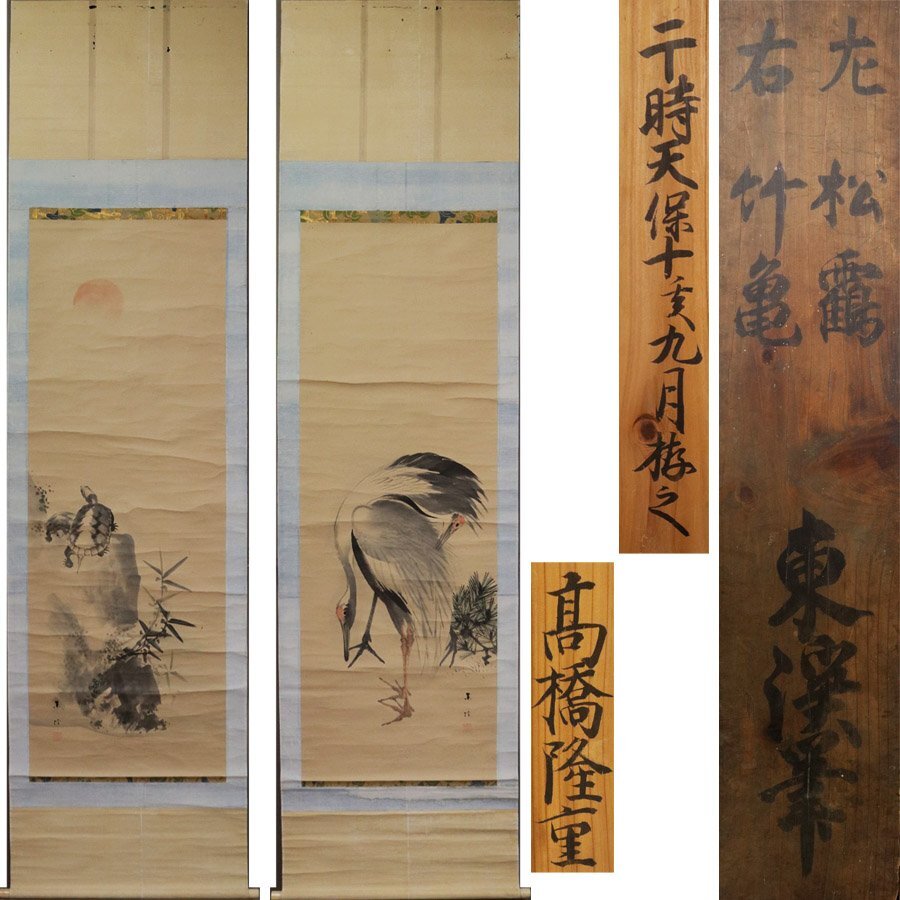 左 松鶴
右 竹亀
東渓筆
干時天保十亥九月求之
高橋隆重